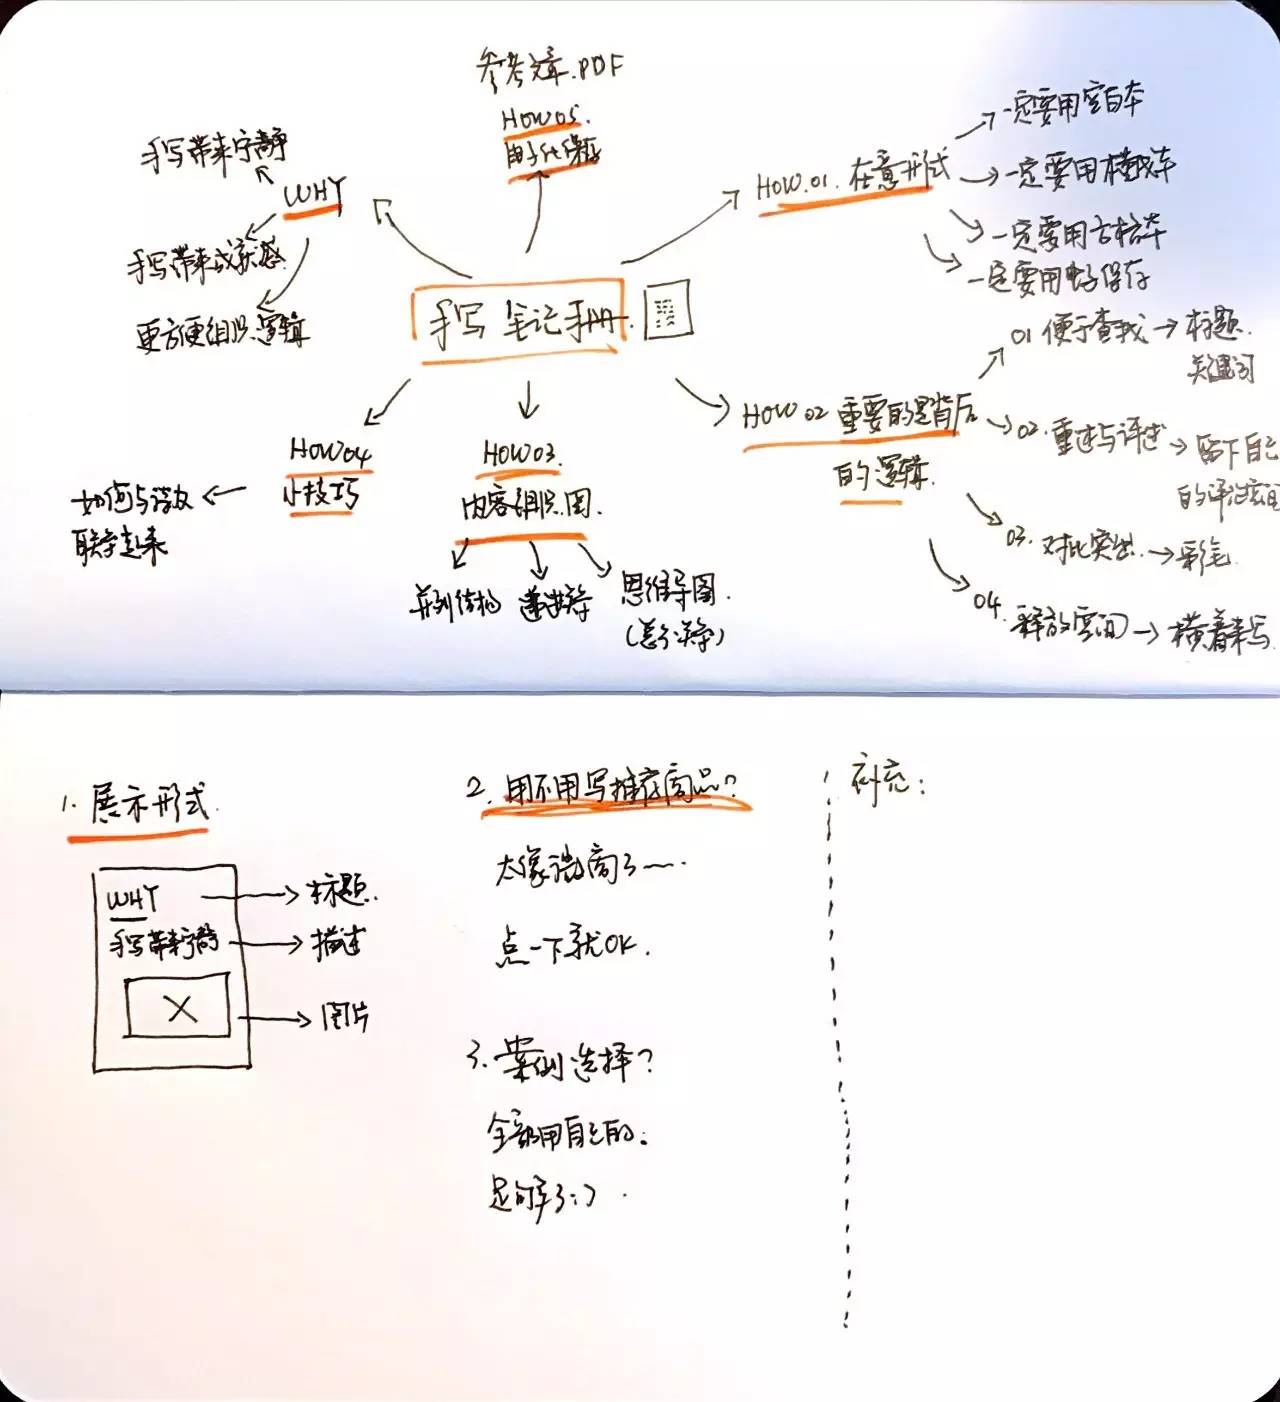 参考文章.PDF
HOW05.
电子化保存
手写带来宁静
WHY
手写带来成就感
更方便组织逻辑
手写笔记手册
HOW.01.在意形式
一定要用空白本
一定要用横线本
一定要用方格本
一定要用电子保存
HOW02重要的是背后
的逻辑.
01便于查找→标题.
关键词
02.重述与评述→留下自己
的评论空间
03.对比突出→彩笔
04.释放空间→横着来写.
HOW04
小技巧
如何与
联结起来
HOW03.
内容组织.图.
并列结构
递进等
思维导图.
1.展示形式.
WHY
手写带来宁静
标题.
描述
图片
2.用不用写推荐商品?
太像微商了~.
点一下就OK.
3.案例选择?
全部用自己的.
足够了:).
补充: